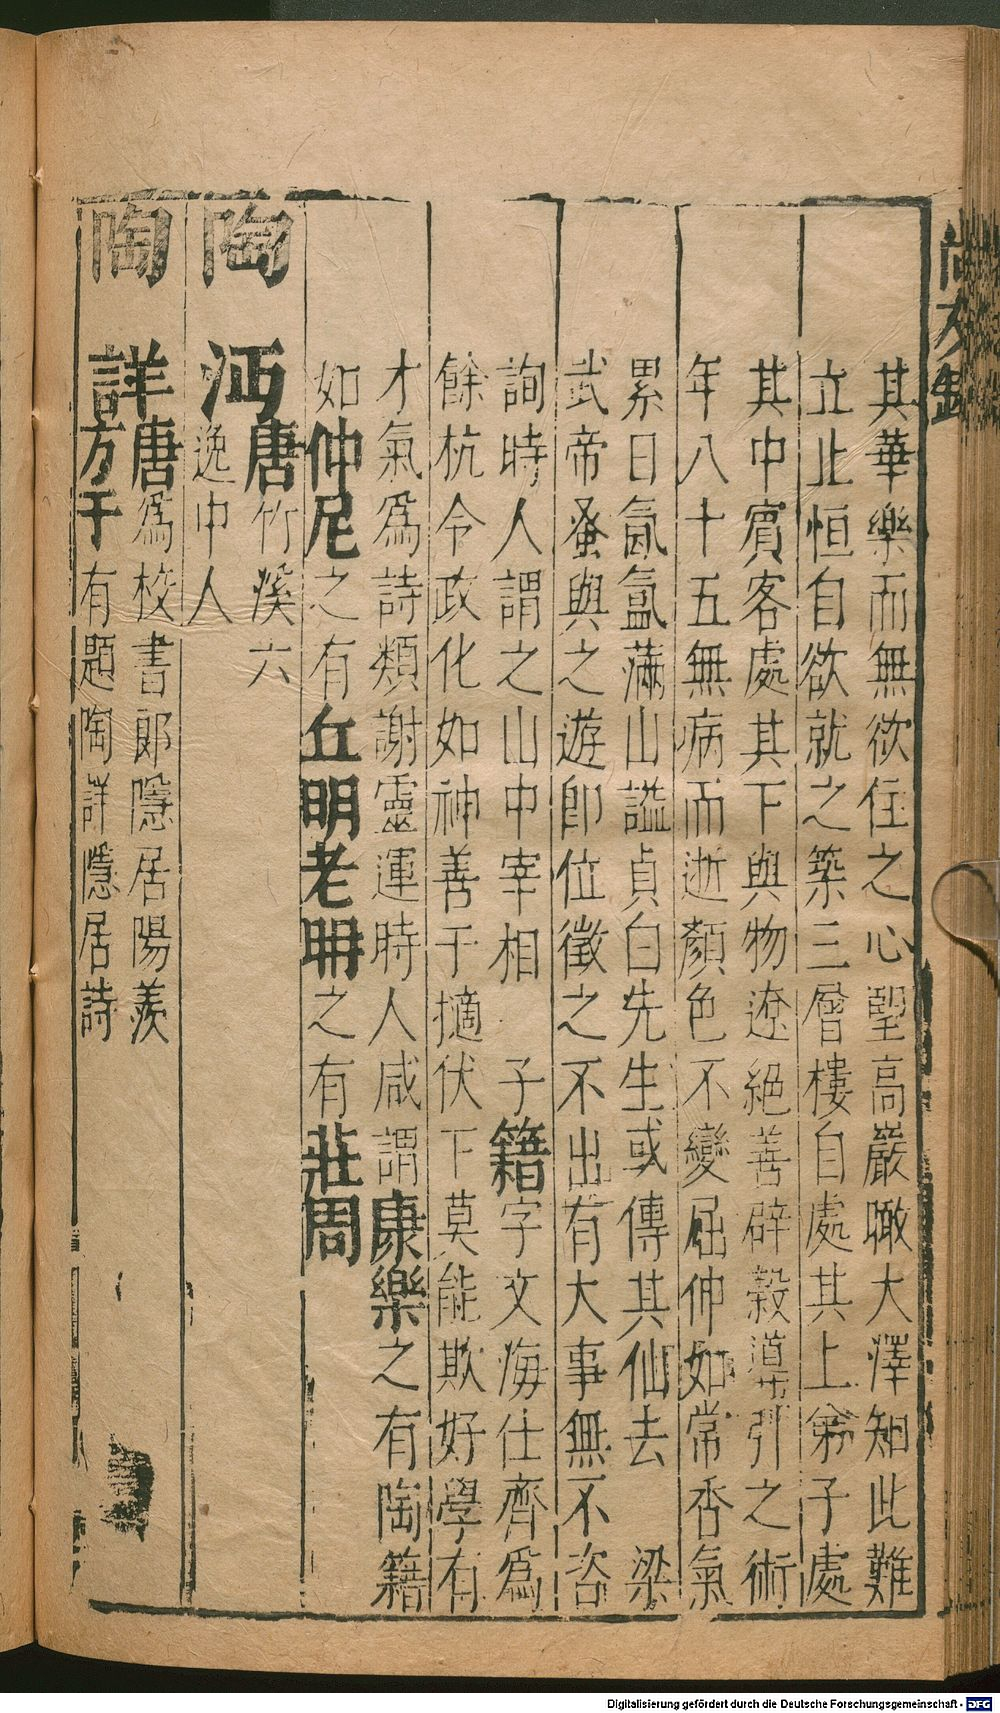 尚友錄
其華樂而無欲住之心望高巖瞰大澤知此難
立止恒自欲就之築三層樓自處其上弟子處
其中賓客處其下與物遼絕善辟穀導引之術
年八十五無病而逝顏色不變屈伸如常香氣
累日氤氳滿山謚貞白先生或傳其仙去 梁
武帝蚤與之遊卽位徵之不出有大事無不咨
詢時人謂之山中宰相 子籍字文海仕齊爲
餘杭令政化如神善于擿伏下莫能欺好學有
才氣爲詩類謝靈運時人咸謂康樂之有陶籍
如仲尼之有丘明老聃之有莊周
陶沔唐竹溪六
逸中人
陶詳唐爲校書郞隱居陽羨
方干有題陶詳隱居詩
Digitalisierung gefördert durch die Deutsche Forschungsgemeinschaft - DFG